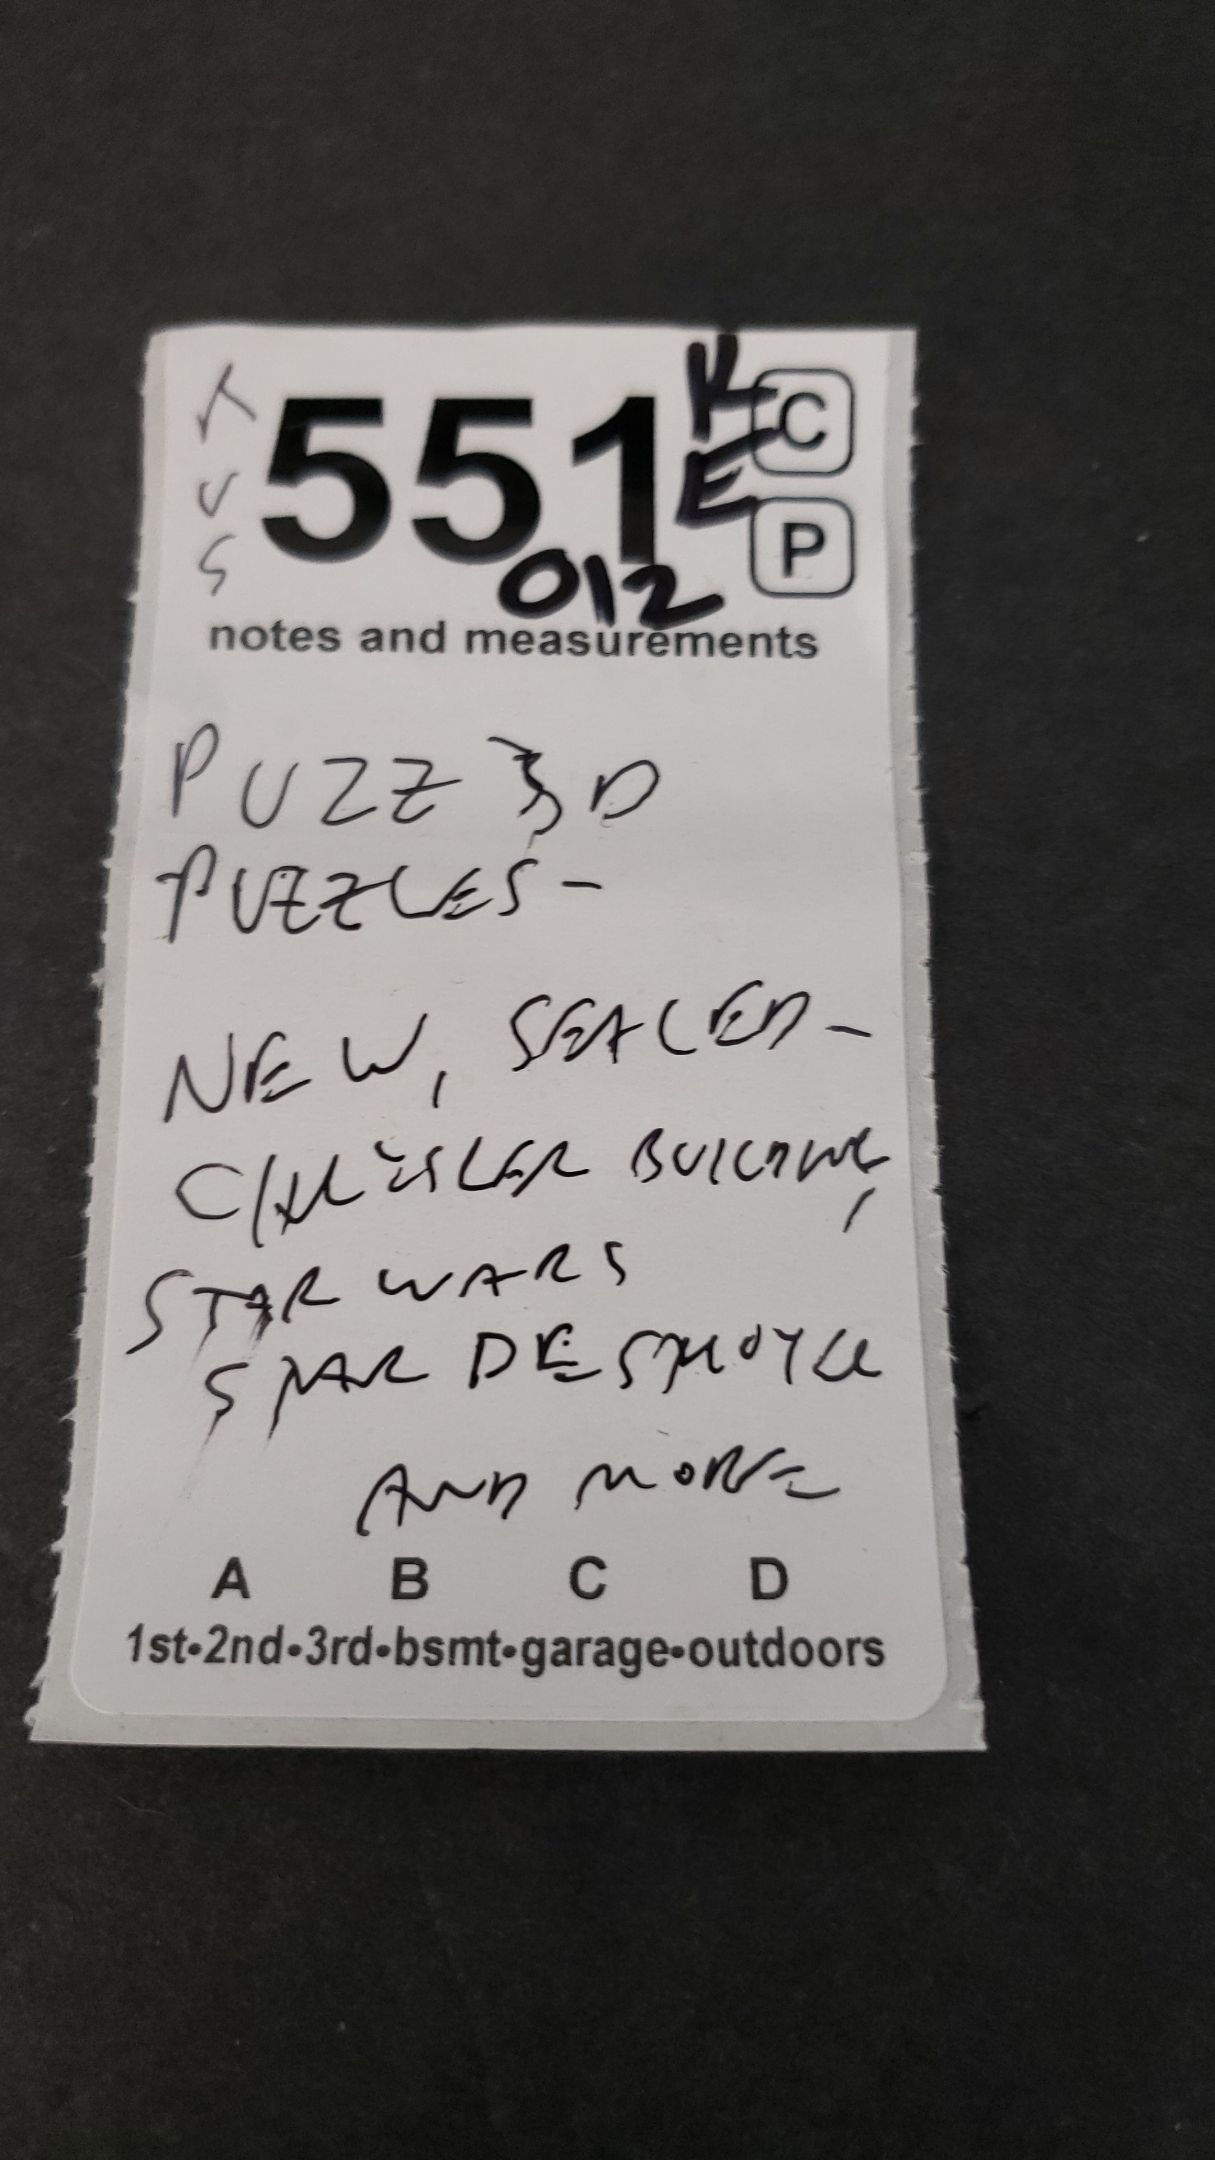 551
K
E
C
P
012
notes and measurements
PUZZ 3D
PUZZLES -
NEW, SEALED -
CHRYSLER BUILDING,
STAR WARS
STAR DESTROYER
AND MORE
A B C D
1st•2nd•3rd•bsmt•garage•outdoors